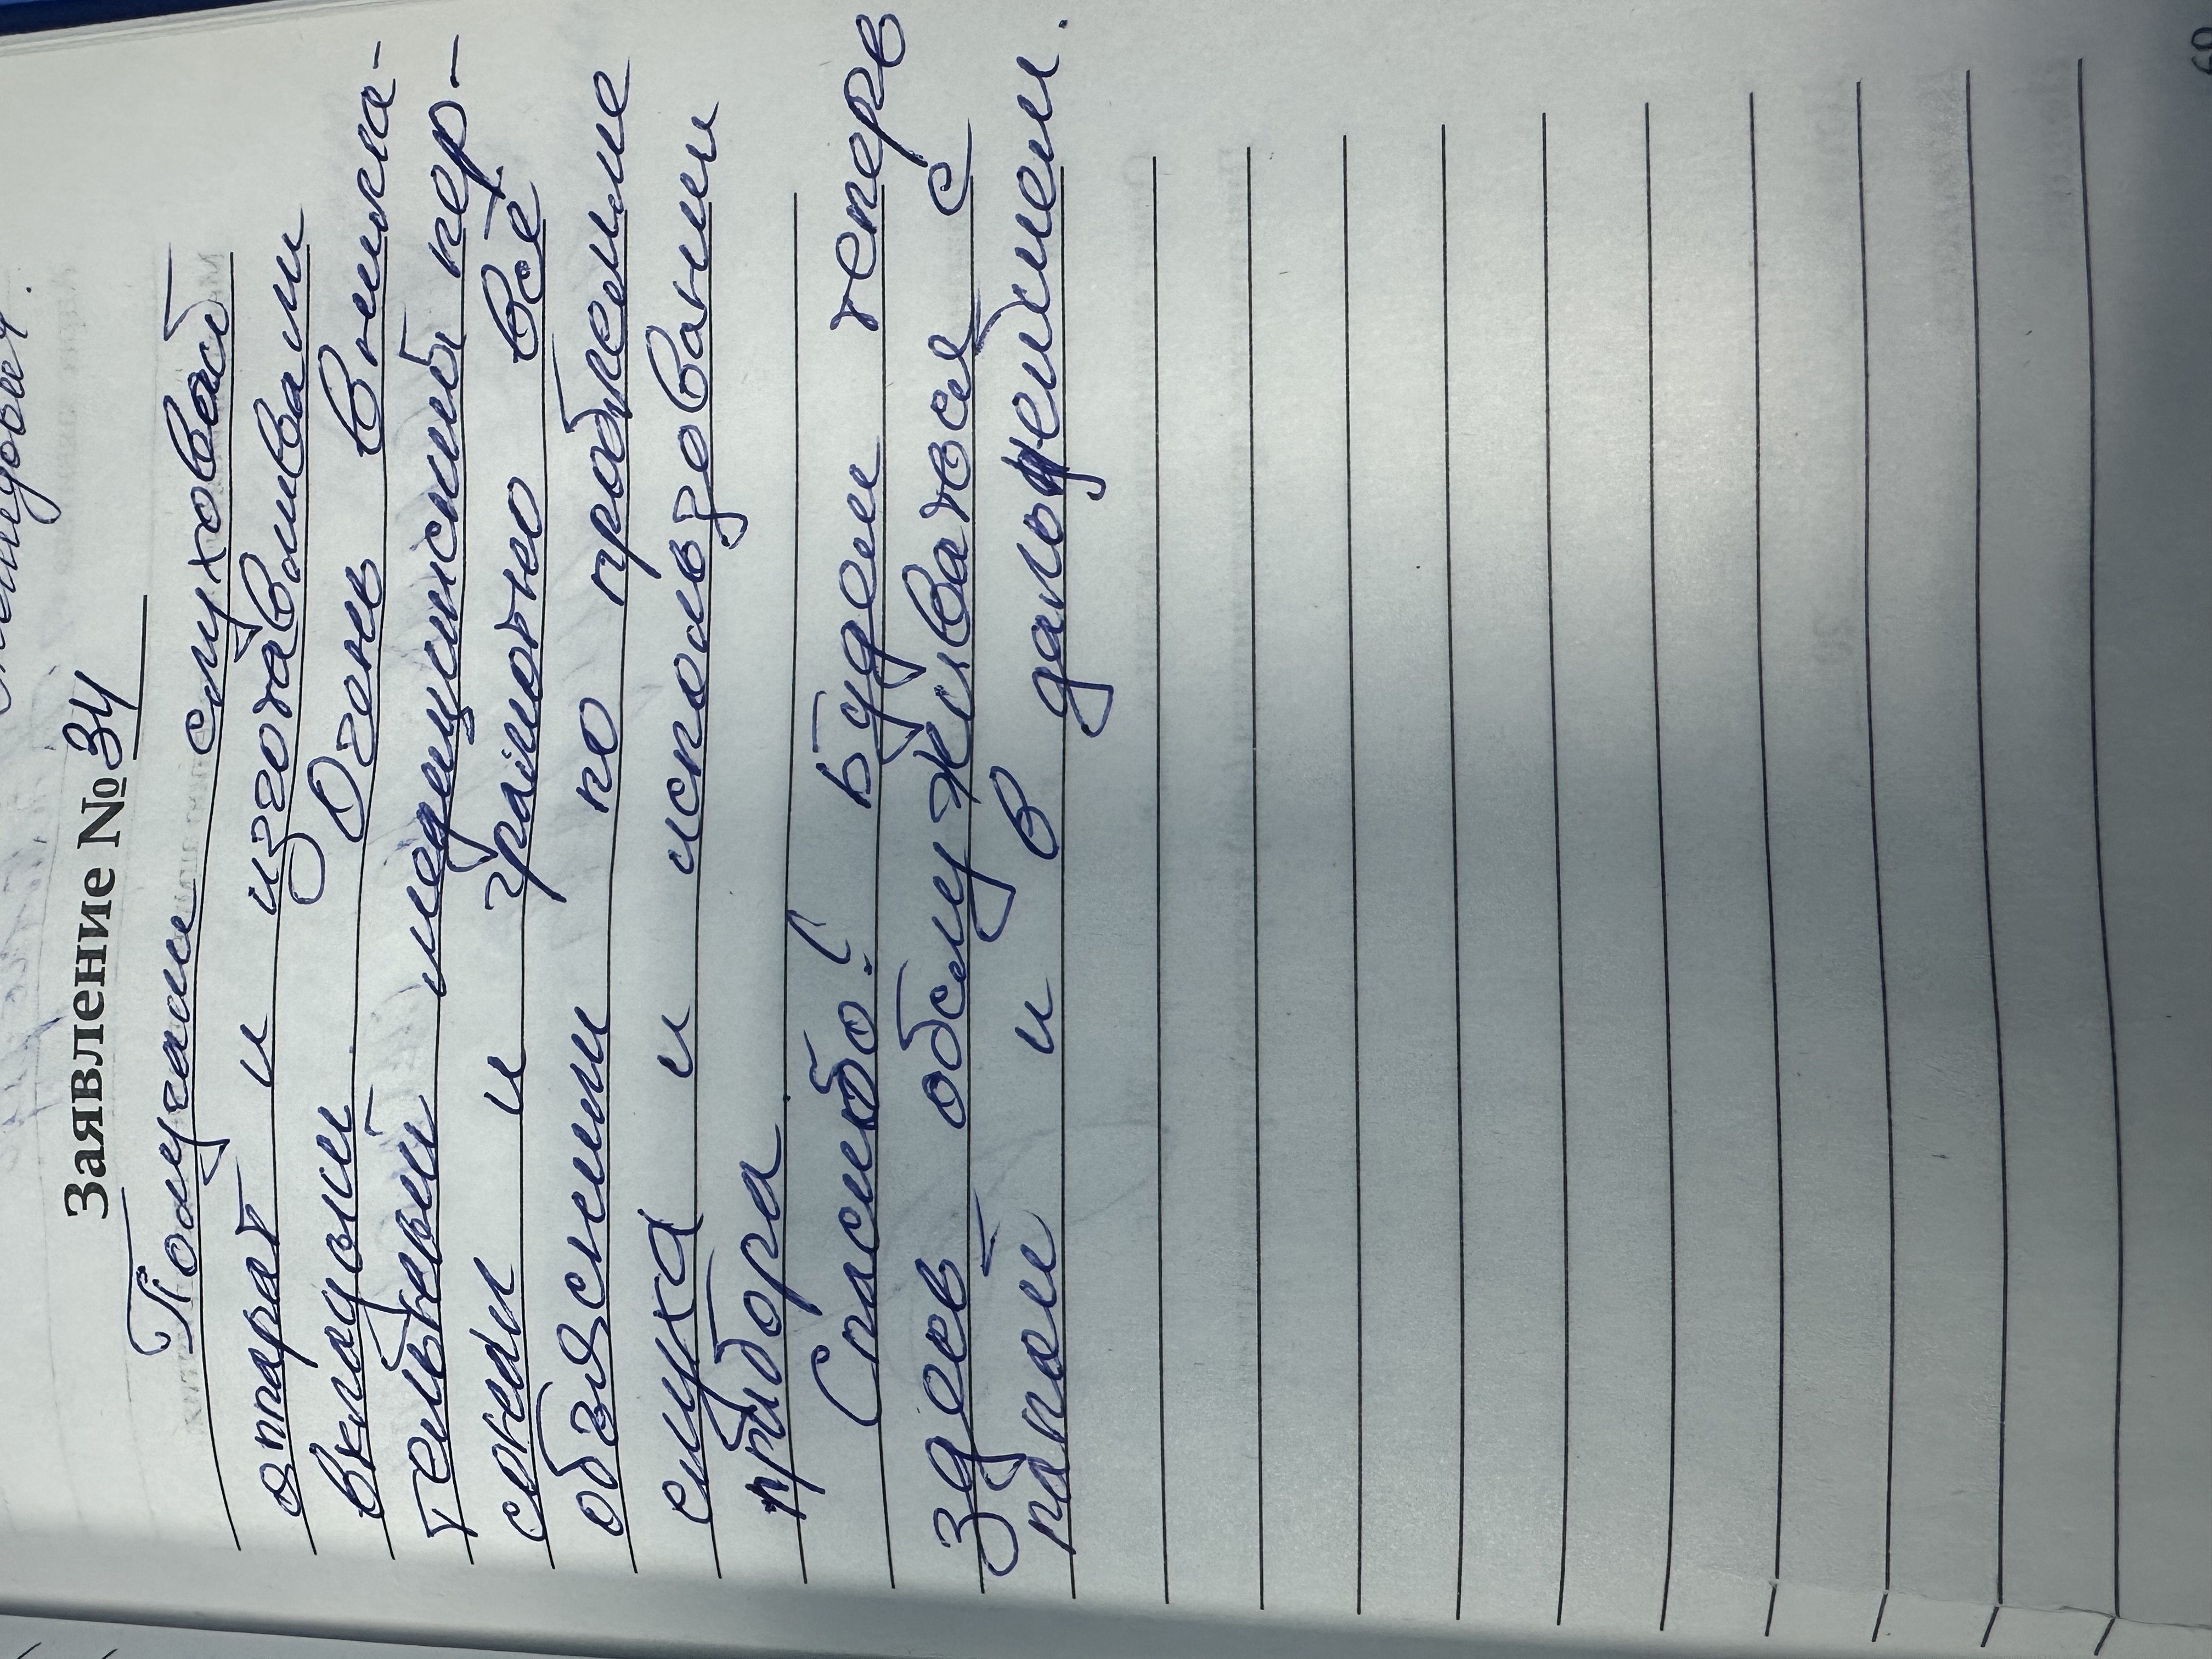 Заявление № 34
Получали слуховой
аппарат и изготавливали
вкладыш. Очень внима-
тельный медицинский пер-
сонал и грамотно всё
обяснили по проблеме
слуха и использовании
прибора
Спасибо! Будем теперь
здесь обслуживаться с
папой и в дальнейшем.
69